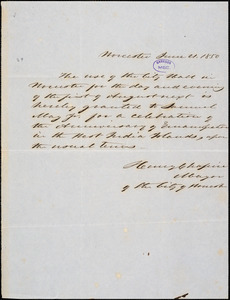 Worcester June 21. 1850
The use of the City Hall in
Worcester for the day and evening
of the first of August next is
hereby granted to Samuel
May Jr. for a celebration of
the Anniversary of Emancipation
in the West India Islands, upon
the usual terms.
Henry Chapin
Mayor
of the City of Worcester